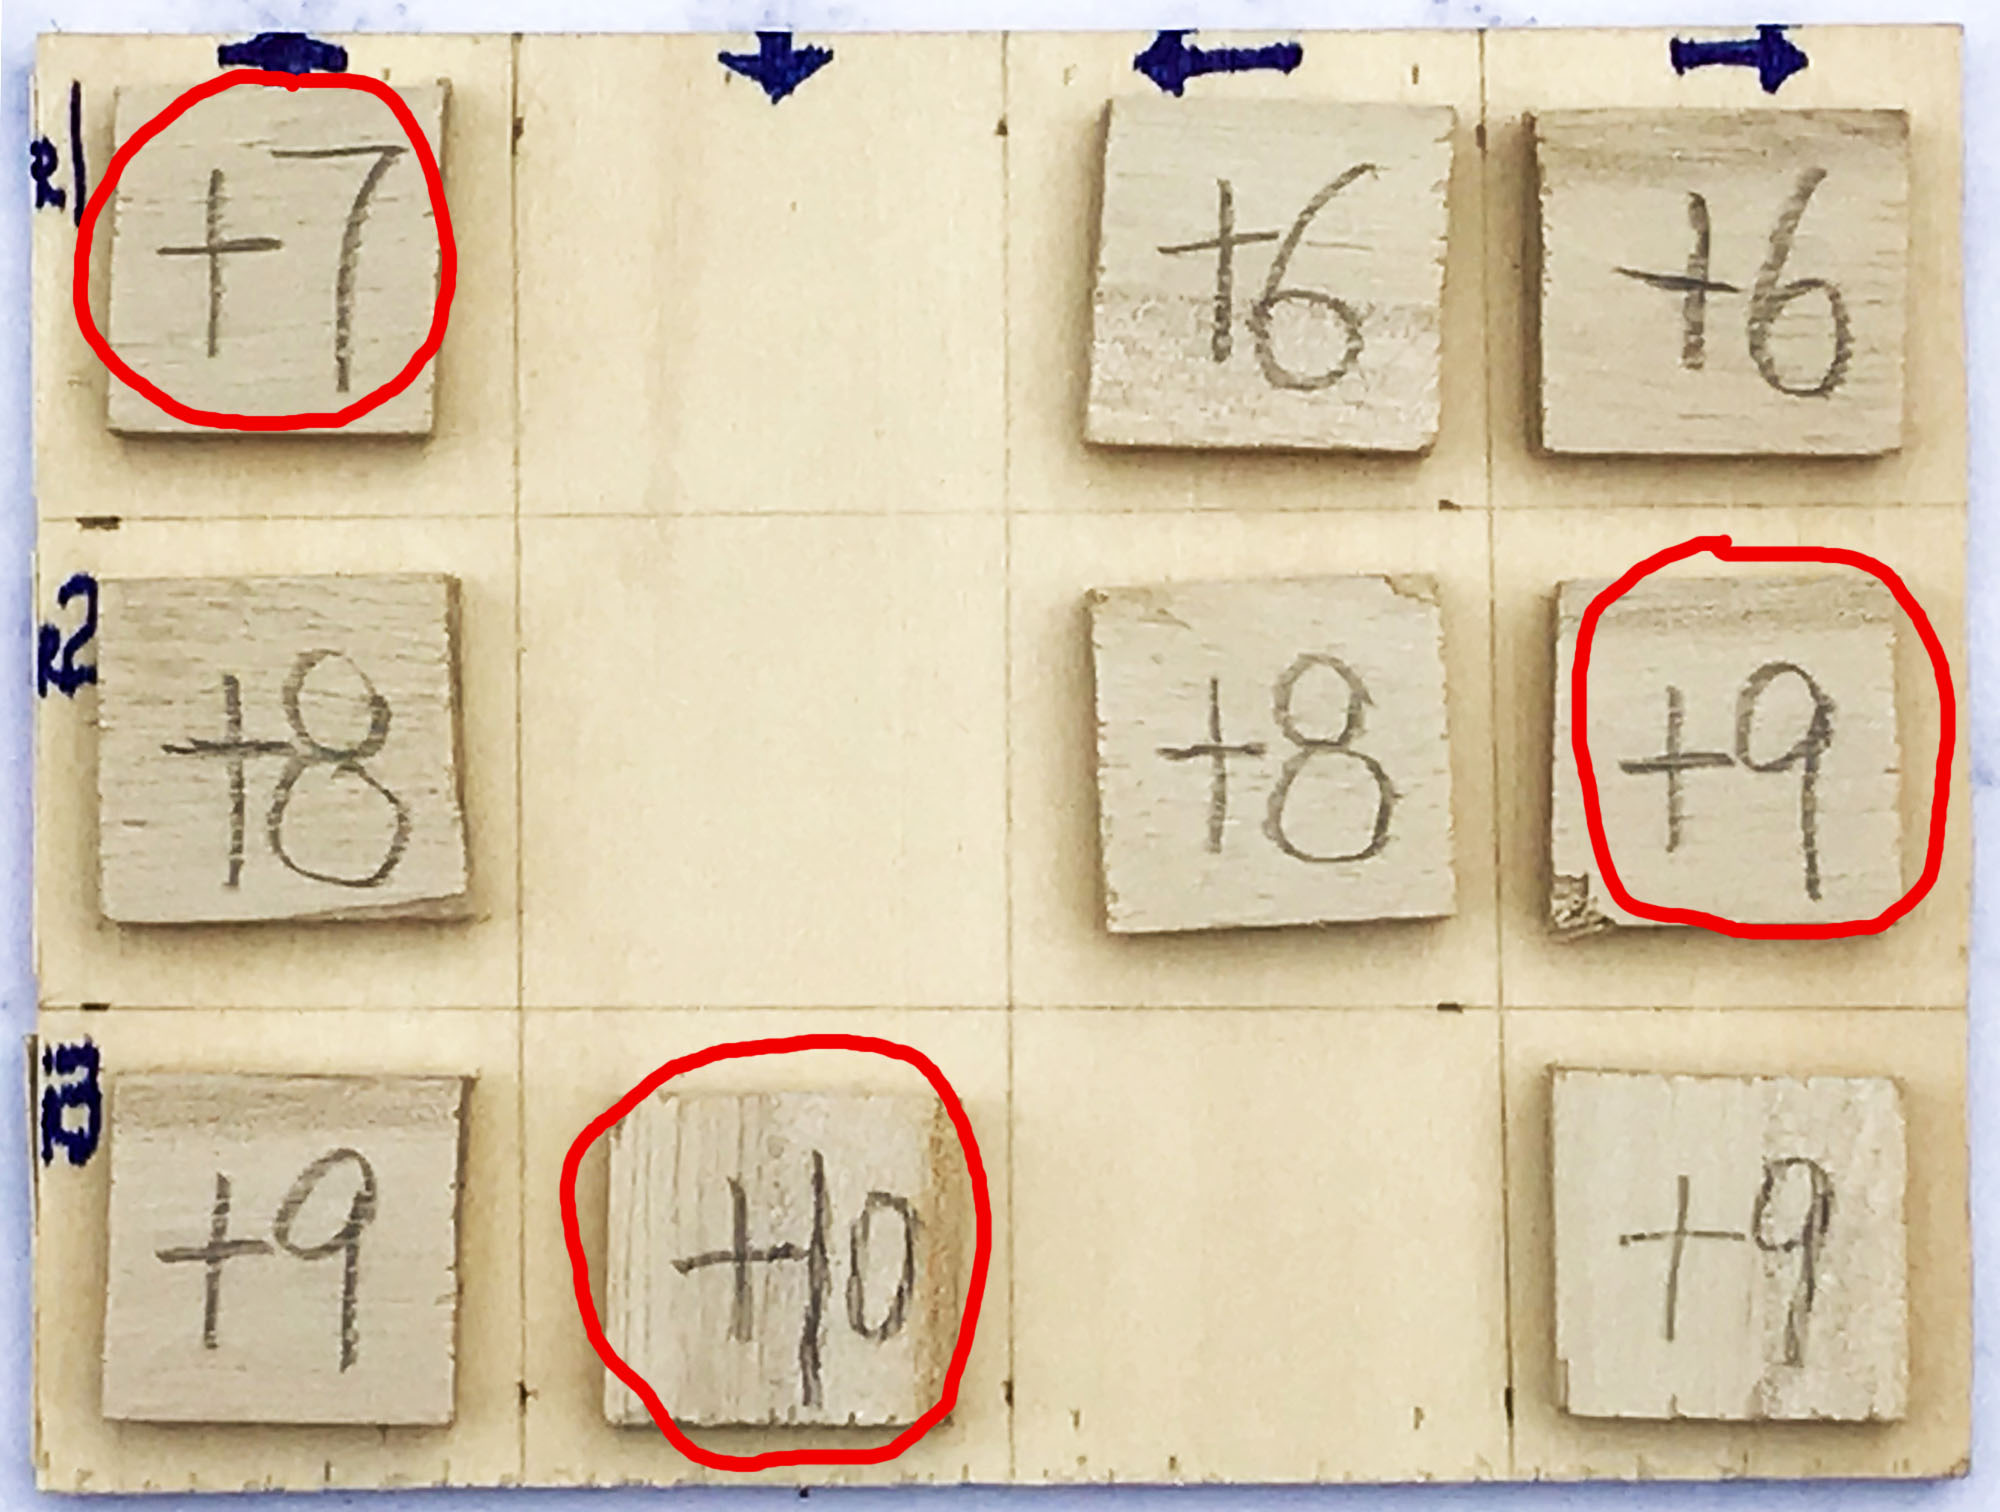 R1 +7 +6 +6
R2 +8 +8 +9
+9 +10 +9